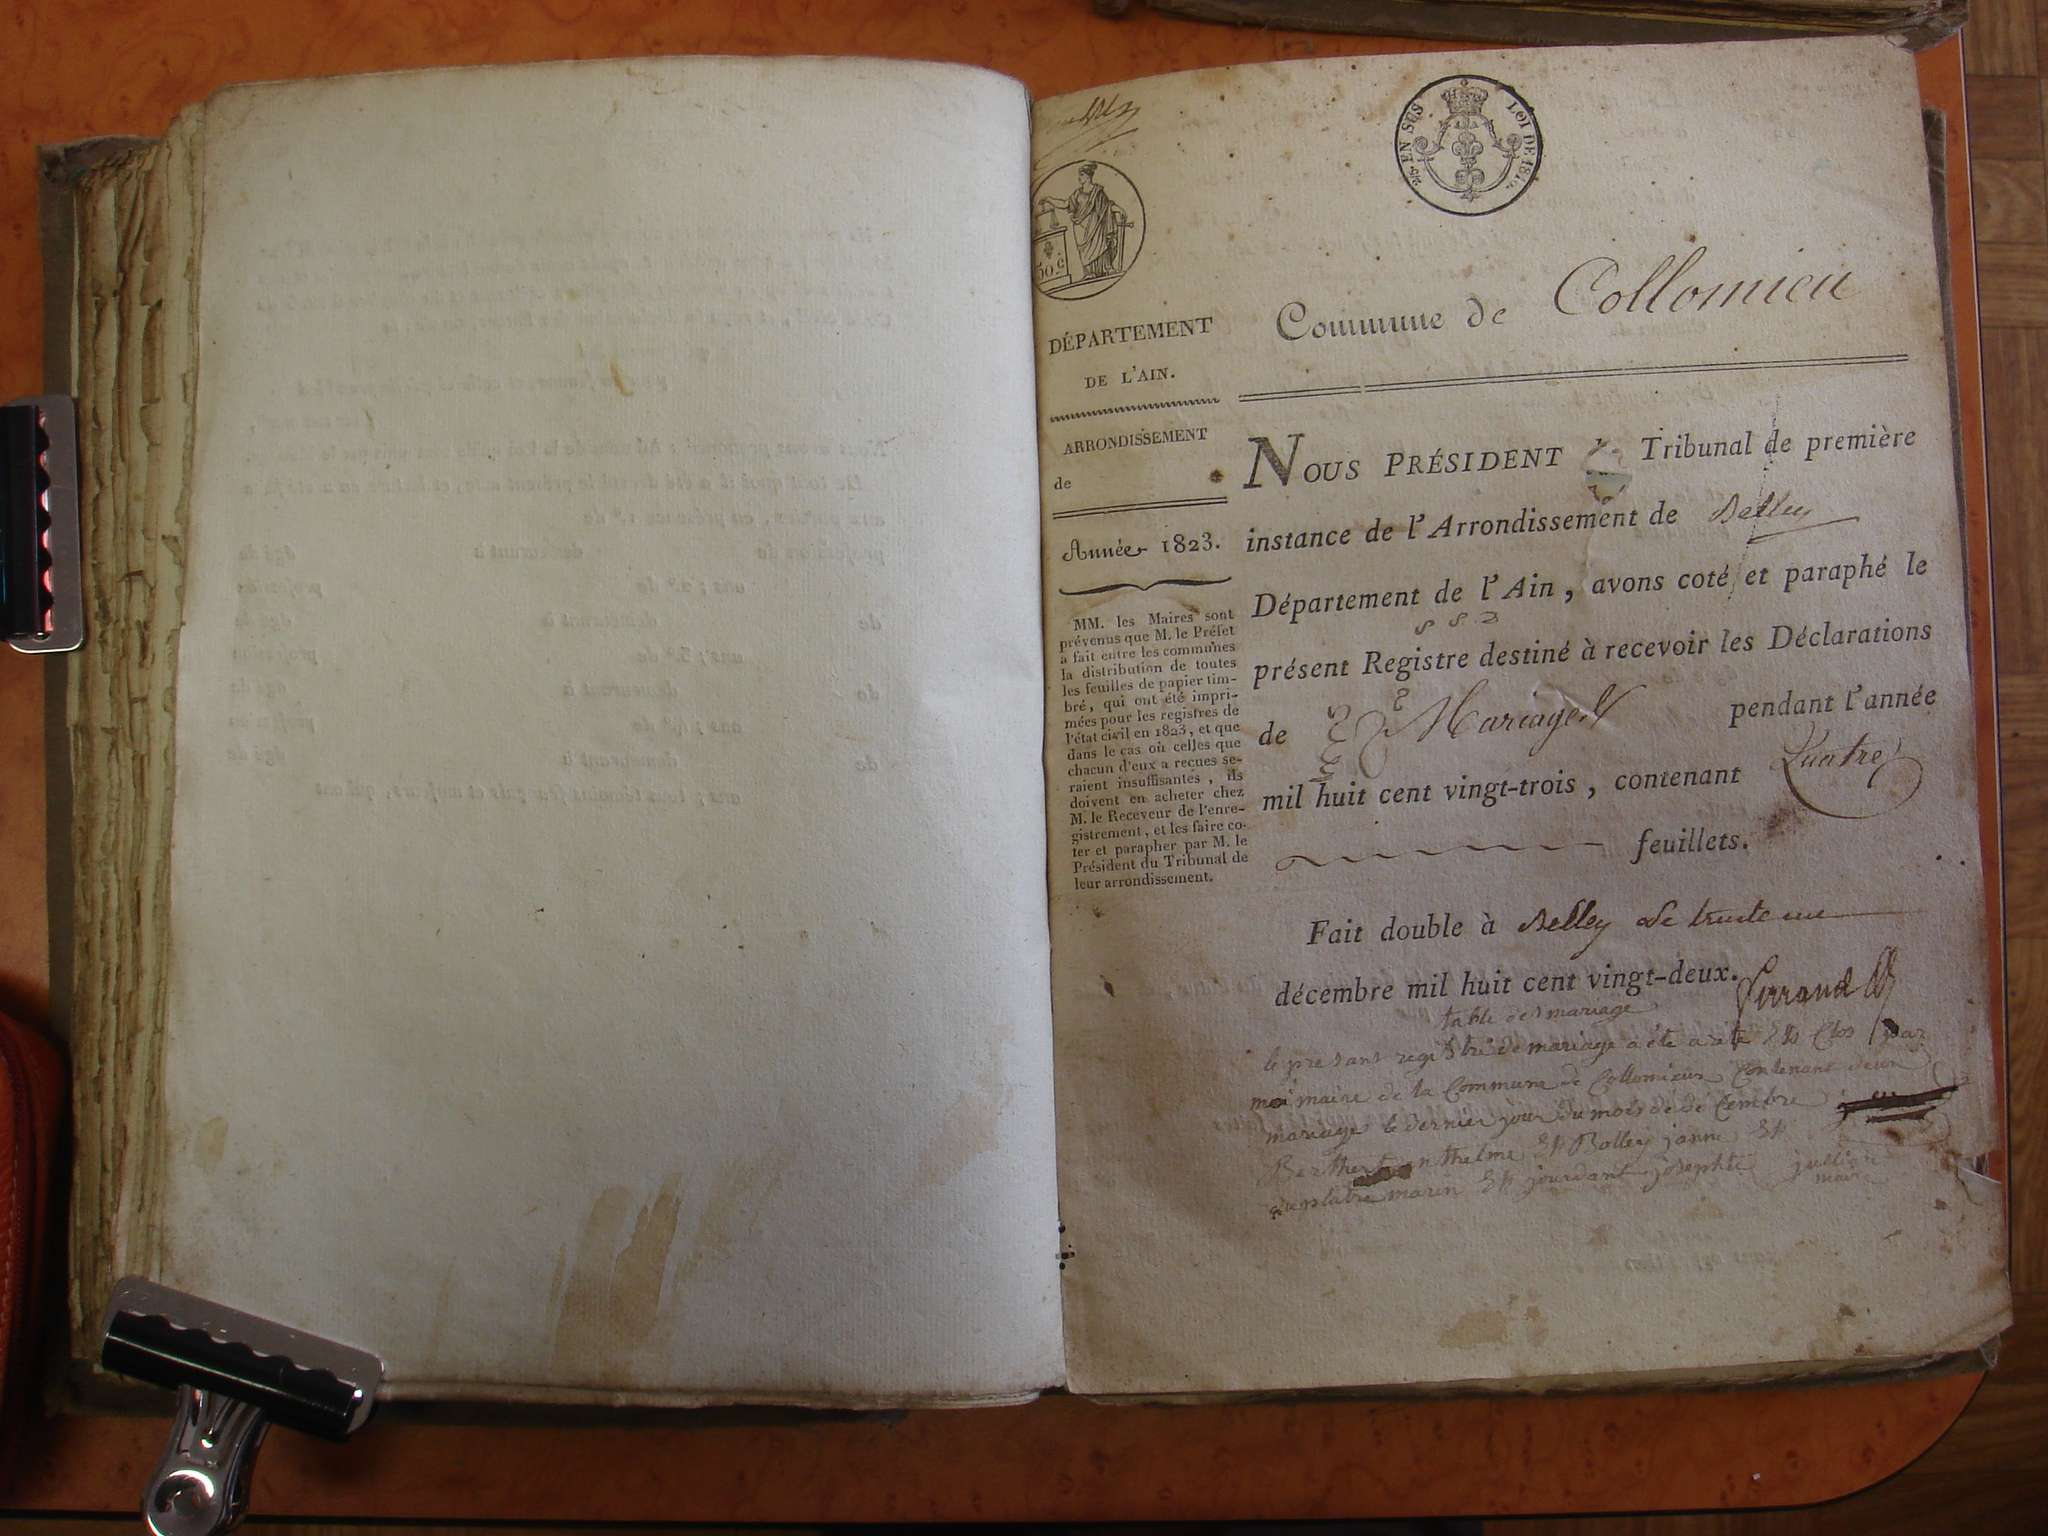 EN SUS
LOI DE 1816.
50.c
DÉPARTEMENT
DE L'AIN.
ARRONDISSEMENT
de
Année 1823.
MM. les Maires sont
prévenus que M. le Préfet
a fait entre les communes
la distribution de toutes
les feuilles de papier tim-
bré, qui ont été impri-
mées pour les registres de
l'état civil en 1823, et que
dans le cas où celles que
chacun d'eux a recues se-
raient insuffisantes, ils
doivent en acheter chez
M. le Receveur de l'enre-
gistrement, et les faire co-
ter et parapher par M. le
Président du Tribunal de
leur arrondissement.
Commune de Collomieu
NOUS PRÉSIDENT Tribunal de première
instance de l'Arrondissement de Belley
Département de l'Ain, avons coté et paraphé le
présent Registre destiné à recevoir les Déclarations
de Mariages pendant l'année
mil huit cent vingt-trois, contenant Quatre
feuillets.
Fait double à Belley le trente un
décembre mil huit cent vingt-deux. Ferrand
table des mariage
le presant registre de mariage a été arété et Clos par
moi maire de la Commune de Collomieux Contenant deux
mariage le dernier jour du mois de deCembre
Berthet anthelme et Bolley janne et
marin et jourdant josephte jullion
maire